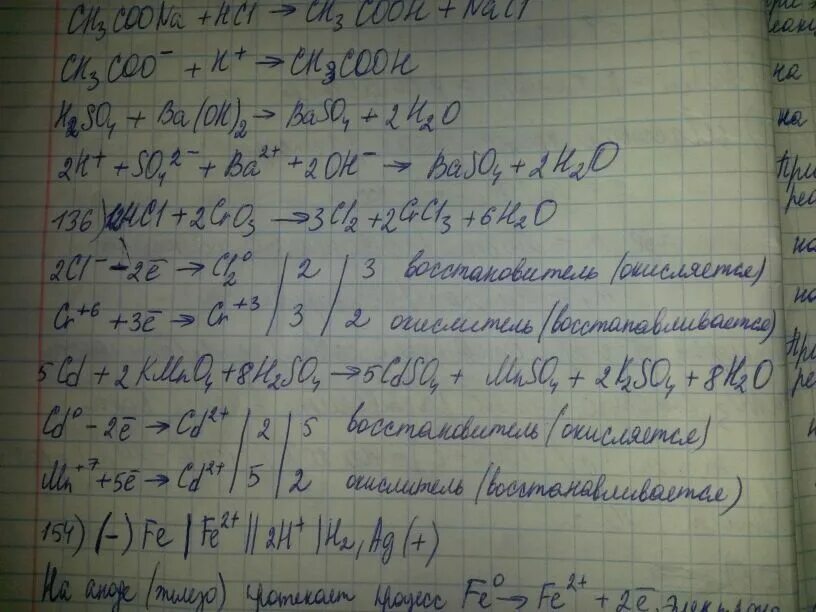 CH₃COONa + HCl → CH₃COOH + NaCl
CH₃COO⁻ + H⁺ → CH₃COOH
H₂SO₄ + Ba(OH)₂ → BaSO₄ + 2H₂O
2H⁺ + SO₄²⁻ + Ba²⁺ + 2OH⁻ → BaSO₄ + 2H₂O
136) 12HCl + 2CrO₃ → 3Cl₂ + 2CrCl₃ + 6H₂O
2Cl⁻ - 2ē → Cl₂⁰ | 2 | 3 восстановитель (окисляется)
Cr⁺⁶ + 3ē → Cr⁺³ | 3 | 2 окислитель (восстанавливается)
5Cd + 2KMnO₄ + 8H₂SO₄ → 5CdSO₄ + MnSO₄ + 2K₂SO₄ + 8H₂O
Cd⁰ - 2ē → Cd²⁺ | 2 | 5 восстановитель (окисляется)
Mn⁺⁷ + 5ē → Cd²⁺ | 5 | 2 окислитель (восстанавливается)
154) (-) Fe | Fe²⁺ || 2H⁺ | H₂, Ag (+)
На аноде (железо) протекает процесс Fe⁰ → Fe²⁺ + 2ē
на
на
При
реа
на
на
При
ре